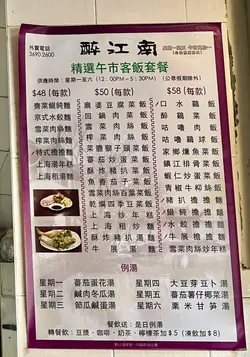 外賣電話
3690 2600
醉江南
精選午市客飯套餐
供應時間：星期一至六（12：00PM－5：30PM）（公眾假期除外）
$48（每款）
菜肉餛飩麵
京式水餃麵
雪菜肉絲麵
榨菜肉絲麵
特式擔擔麵
上海湯年糕
上海粗湯麵
$50（每款）
麻婆豆腐菜飯
回鍋肉菜飯
雪菜肉絲菜飯
榨菜肉絲菜飯
菜膽獅子頭菜飯
蕃茄炒蛋菜飯
酥炸豬扒菜飯
魚香茄子菜飯
雪菜肉碎菜飯
乾煸四季豆菜飯
上海炒年糕
上海粗炒麵
酥炸豬扒湯麵
牛展湯麵
$58（每款）
口水雞飯
醉雞菜飯
咕嚕肉飯
咕嚕雞球飯
家鄉燻魚菜飯
鎮江排骨菜飯
銀芽雞絲菜飯
青椒牛柳絲飯
豬扒擔擔麵
餛飩擔擔麵
水餃擔擔麵
牛展擔擔麵
雪菜肉絲炒年糕
例湯
星期一 蕃茄蛋花湯
星期二 鹹肉冬瓜湯
星期三 節瓜鹹蛋湯
星期四 大豆芽豆卜湯
星期五 蕃茄薯仔椰菜湯
星期六 粟米甘筍湯
餐飲送：是日例湯
轉餐飲：豆漿．咖啡．奶茶．檸檬茶加$5（凍飲加$8）